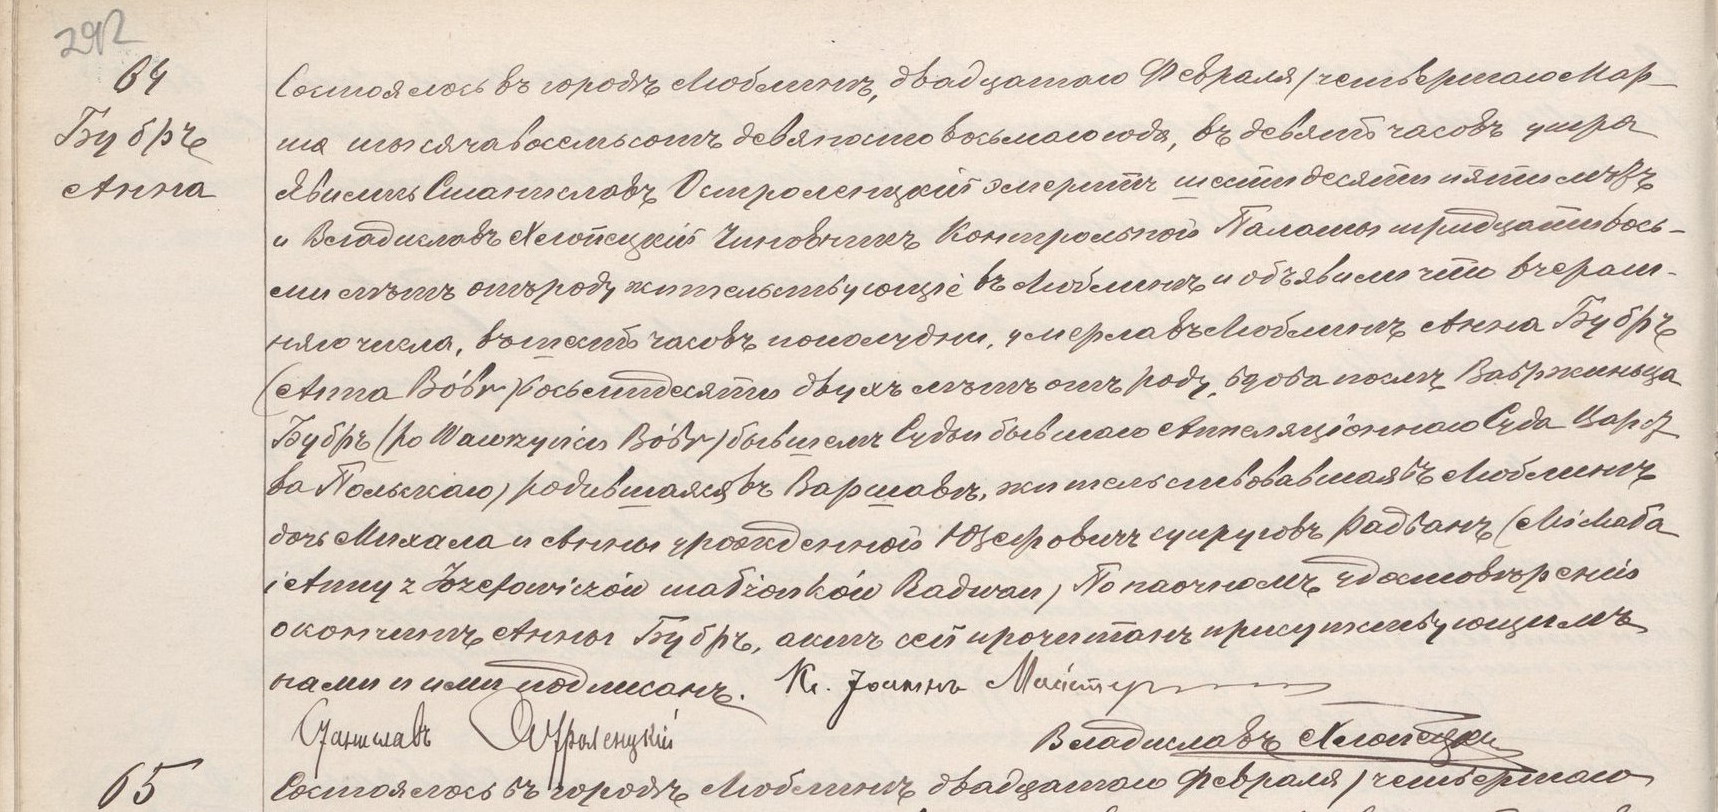 292
64
Бубръ
Анна
Состоялось въ городѣ Люблинѣ, двадцатаго Февраля / четвертаго Мар-
та тысяча восемьсотъ девяносто восьмаго года, въ девять часовъ утра
Явились Станиславъ Остроленцкій эмеритъ шестидесяти пяти лѣтъ
и Владиславъ Хлопецкій Чиновникъ Контрольной Палаты тридцати вось-
ми лѣтъ отъ роду жительствующіе въ Люблинѣ и объявили что вчераш-
няго числа, въ шесть часовъ пополудни, умерла въ Люблинѣ Анна Бубръ
(Anna Bóbr) восьмидесяти двухъ лѣтъ отъ роду, вдова послѣ Вавржиньца
Бубръ (po Wawrzyńcu Bóbr) бывшемъ Судьи бывшаго Аппеляціоннаго Суда Царст
ва Польскаго, родившаяся въ Варшавѣ, жительствовавшая въ Люблинѣ
дочь Михала и Анны урожденной Юзефовичъ супруговъ Радванъ (Michała
i Anny z Józefowiczów małżonków Radwan) По наочномъ удостовѣреніи
о кончинѣ Анны Бубръ, актъ сей прочитанъ присутствующимъ
нами и ими подписанъ. Кс. Іоаннъ
Станиславъ Остроленцкій
Владиславъ Хлопецкій
65
Состоялось въ городѣ Люблинѣ двадцатаго Февраля / четвертаго